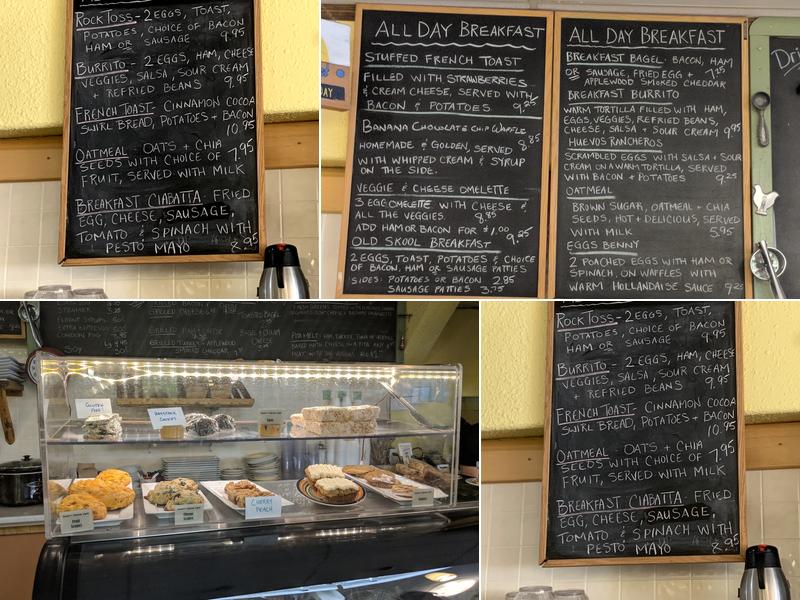 ROCK TOSS - 2 EGGS, TOAST,
POTATOES, CHOICE OF BACON
HAM OR SAUSAGE 9.95
BURRITO - 2 EGGS, HAM, CHEESE
VEGGIES, SALSA, SOUR CREAM
+ REFRIED BEANS 9.95
FRENCH TOAST- CINNAMON COCOA
SWIRL BREAD, POTATOES + BACON
10.95
OATMEAL - OATS + CHIA
SEEDS WITH CHOICE OF 7.95
FRUIT, SERVED WITH MILK
BREAKFAST CIABATTA- FRIED
EGG, CHEESE, SAUSAGE,
TOMATO & SPINACH WITH
PESTO MAYO 8.95
ALL DAY BREAKFAST
STUFFED FRENCH TOAST
FILLED WITH STRAWBERRIES
& CREAM CHEESE, SERVED WITH
BACON & POTATOES 9.25
BANANA CHOCOLATE CHIP WAFFLE
HOMEMADE & GOLDEN, SERVED 8.85
WITH WHIPPED CREAM & SYRUP
ON THE SIDE.
VEGGIE & CHEESE OMELETTE
3 EGG OMELETTE WITH CHEESE &
ALL THE VEGGIES. 8.85
ADD HAM OR BACON FOR $1.00
OLD SKOOL BREAKFAST 9.25
2 EGGS, TOAST, POTATOES & CHOICE
OF BACON, HAM OR SAUSAGE PATTIES
SIDES: POTATOES OR BACON 2.85
SAUSAGE PATTIES 3.75
ALL DAY BREAKFAST
BREAKFAST BAGEL- BACON, HAM
OR SAUSAGE, FRIED EGG + 7.25
APPLEWOOD SMOKED CHEDDAR
BREAKFAST BURRITO
WARM TORTILLA FILLED WITH HAM,
EGGS, VEGGIES, REFRIED BEANS,
CHEESE, SALSA + SOUR CREAM 9.95
HUEVOS RANCHEROS
SCRAMBLED EGGS WITH SALSA + SOUR
CREAM ON A WARM TORTILLA, SERVED
WITH BACON + POTATOES 9.25
OATMEAL
BROWN SUGAR, OATMEAL + CHIA
SEEDS, HOT + DELICIOUS, SERVED
WITH MILK 5.95
EGGS BENNY
2 POACHED EGGS WITH HAM OR
SPINACH, ON WAFFLES WITH
WARM HOLLANDAISE SAUCE 9.25
Dri
DAY
STEAMER
LONDON FOG
SOY
TOASTED BAGEL
GRILLED TURKEY + APPLEWOOD
SMOKED CHEDDAR
PITA MELT: HAM, TURKEY, TUNA OR VEGGIES
GLUTEN
FREE
HAYSTACK
COOKIES
CHERRY
PEACH
ROCK TOSS - 2 EGGS, TOAST,
POTATOES, CHOICE OF BACON
HAM OR SAUSAGE 9.95
BURRITO - 2 EGGS, HAM, CHEESE
VEGGIES, SALSA, SOUR CREAM
+ REFRIED BEANS 9.95
FRENCH TOAST- CINNAMON COCOA
SWIRL BREAD, POTATOES + BACON
10.95
OATMEAL - OATS + CHIA
SEEDS WITH CHOICE OF 7.95
FRUIT, SERVED WITH MILK
BREAKFAST CIABATTA- FRIED
EGG, CHEESE, SAUSAGE,
TOMATO & SPINACH WITH
PESTO MAYO 8.95